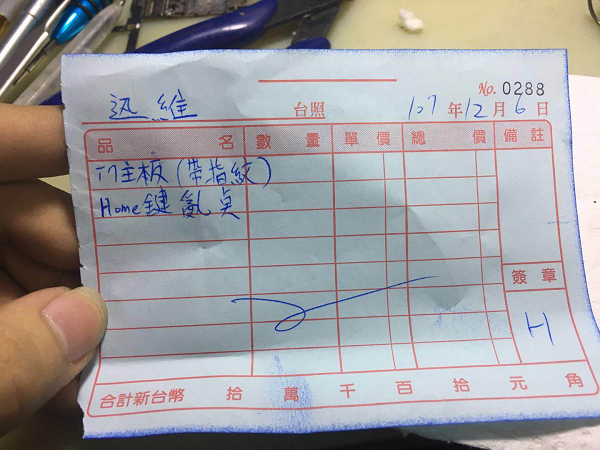 No. 0288
迅維 台照 107年12月6日
品名 數量 單價 總價 備註
i7主板(帶指紋)
Home鍵亂
簽章
H
合計新台幣 拾 萬 千 百 拾 元 角